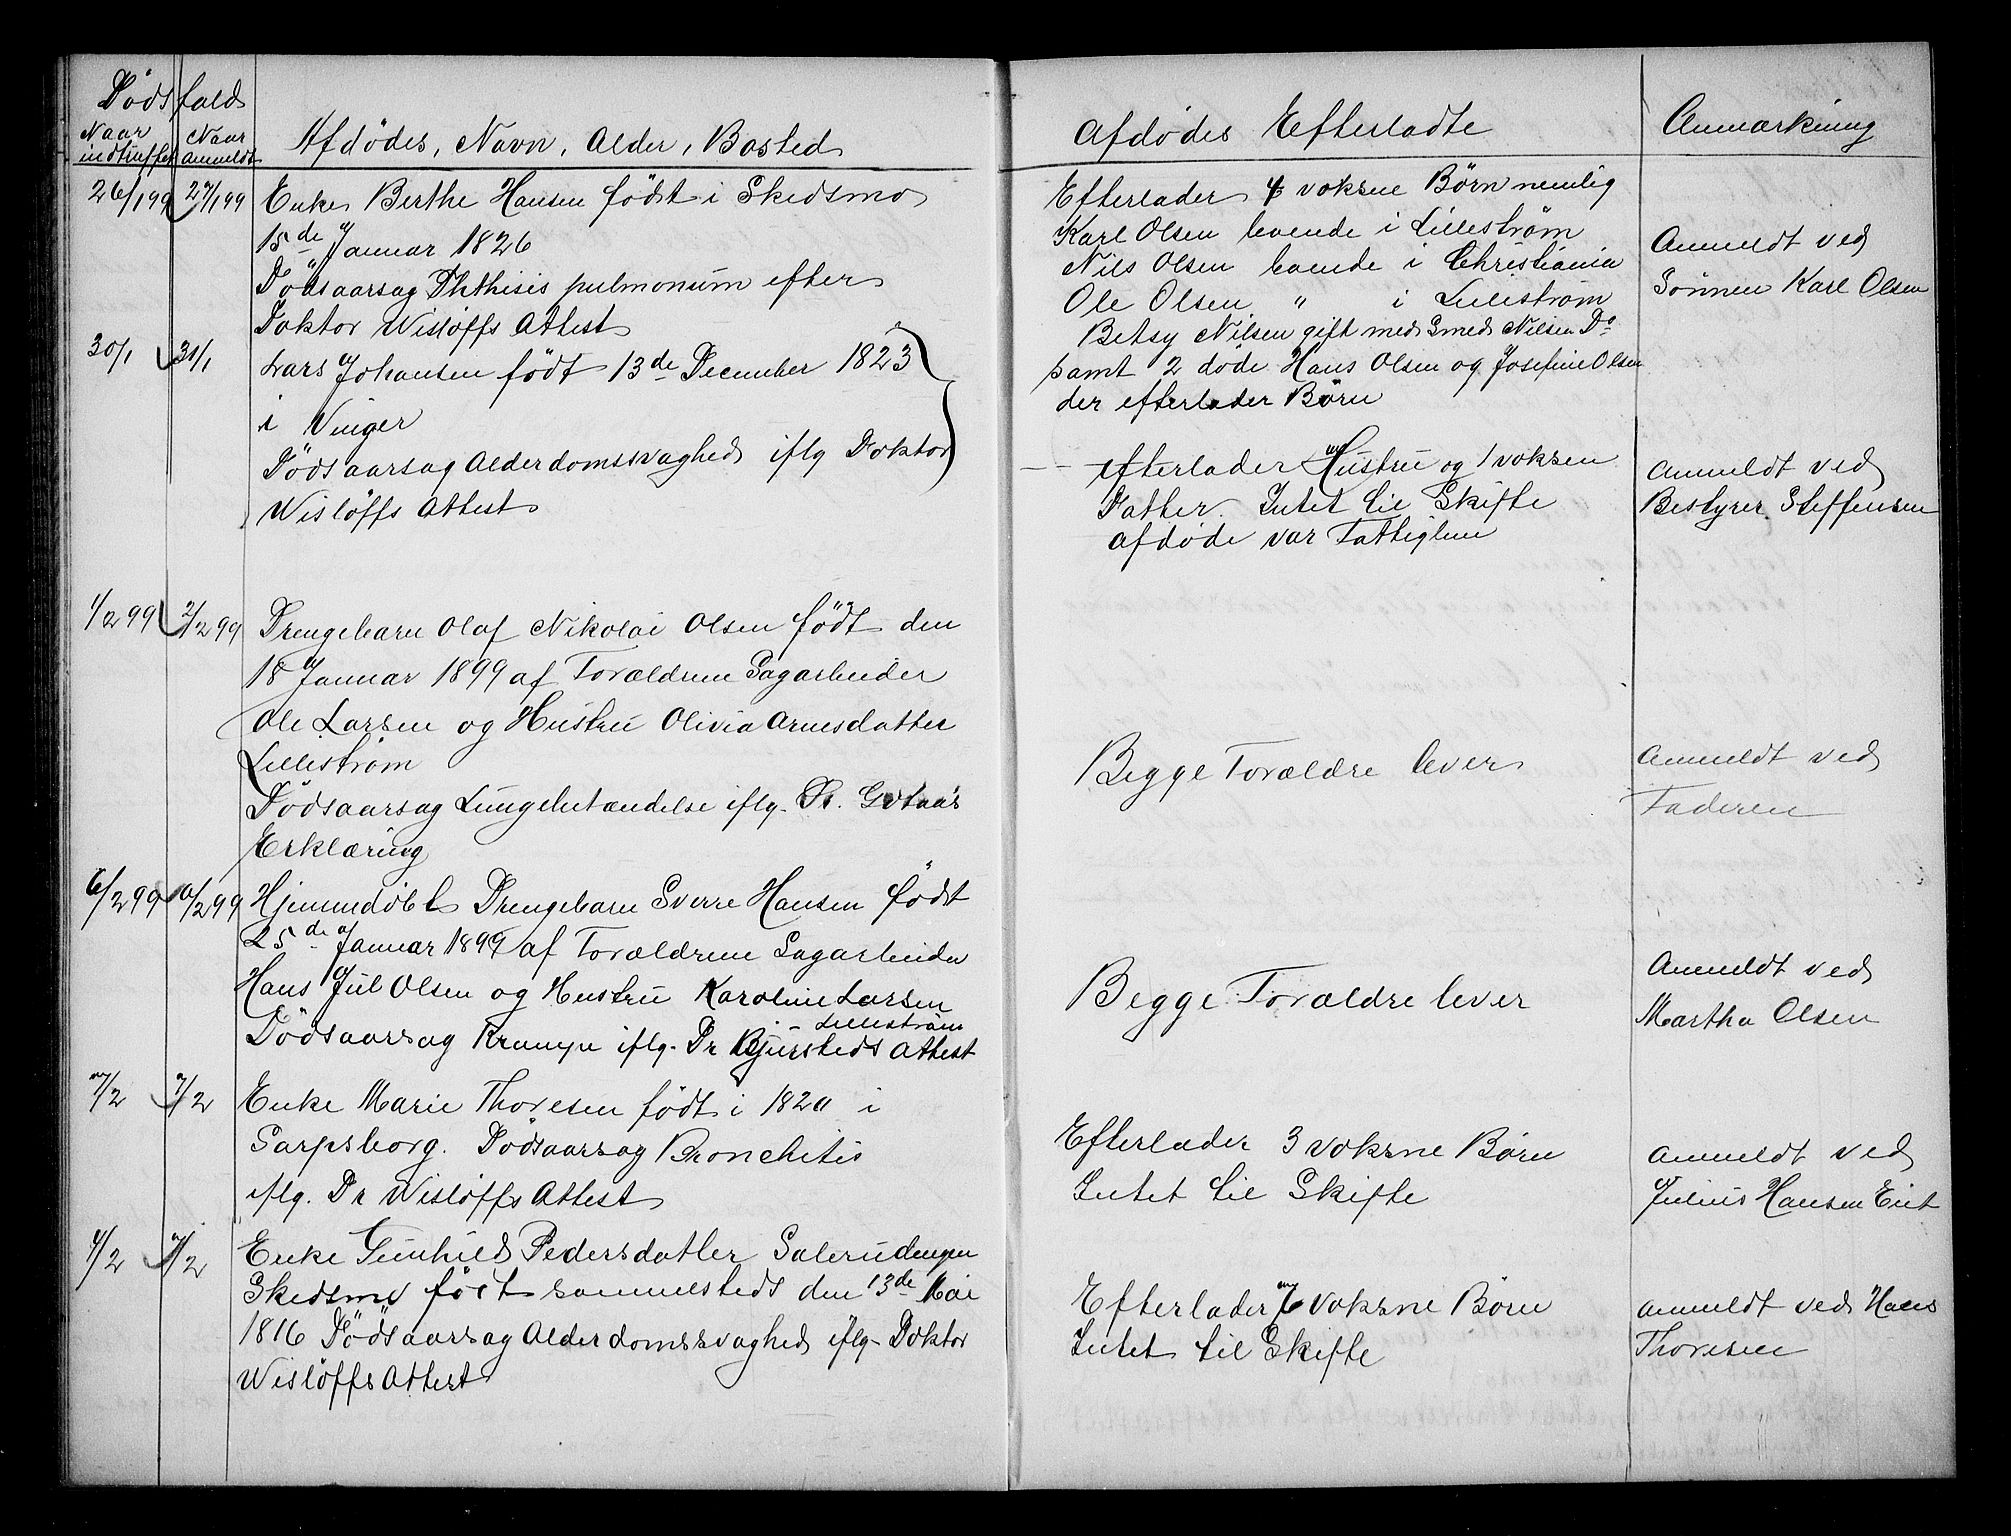 Dödsfald
Naar indtruffet
Naar anmeldt
Afdödes, Navn, Alder, Bosted
Afdödes Efterladte
Anmærkning
26/1 99 27/1 99 Enke Berthe Hansen født i Skedsmo
15de Januar 1826
Dödsaarsag Phthisis pulmonum efter
Doktor Wislöffs Attest
Efterlader 4 voksne Børn nemlig
Karl Olsen boende i Lilleström
Nils Olsen boende i Christiania
Ole Olsen " i Lilleström
Betsy Nilsen gift med Smed Nilsen Do
samt 2 döde Hans Olsen og Josefine Olsen
der efterlader Börn
Anmeldt ved
Sönnen Karl Olsen
30/1 31/1 Lars Johansen født 13de December 1823
i Vinger
Dödsaarsag Alderdomssvaghed iflg Doktor
Wislöffs Attest
efterlader Hustru og 1 voksen
Datter. Intet til Skifte
afdöde var Fattiglem
Anmeldt ved
Bestyrer Steffensen
1/2 99 2/2 99 Drengebarn Olaf Nikolai Olsen födt den
18 Januar 1899 af Forældrene Sagarbeider
Ole Larsen og Hustru Olivia Arnesdatter
Lilleström
Dödsaarsag Lungebetændelse iflg. Dr. Gotaas
Erklæring
Begge Forældre lever
Anmeldt ved
Faderen
6/2 99 6/2 99 Hjemmedöbt Drengebarn Sverre Hansen födt
25de Januar 1899 af Forældrene Sagarbeider
Hans Jul Olsen og Hustru Karoline Larsen
Lilleström
Dödsaarsag Krampe iflg. Dr Bjursteds Attest
Begge Forældre lever
Anmeldt ved
Martha Olsen
7/2 7/2 Enke Marie Thoresen født i 1820 i
Sarpsborg. Dödsaarsag Bronchitis
iflg. Dr Wislöffs Attest
Efterlader 3 voksne Börn
Intet til Skifte
Anmeldt ved
Julius Hansen Eut
4/2 7/2 Enke Gunhild Pedersdatter
Skedsmo født sammesteds den 13de Mai
1816 Dödsaarsag Alderdomssvaghed iflg. Doktor
Wislöffs Attest
Efterlader voksne Börn
Intet til Skifte
anmeldt ved Hans
Thoresen